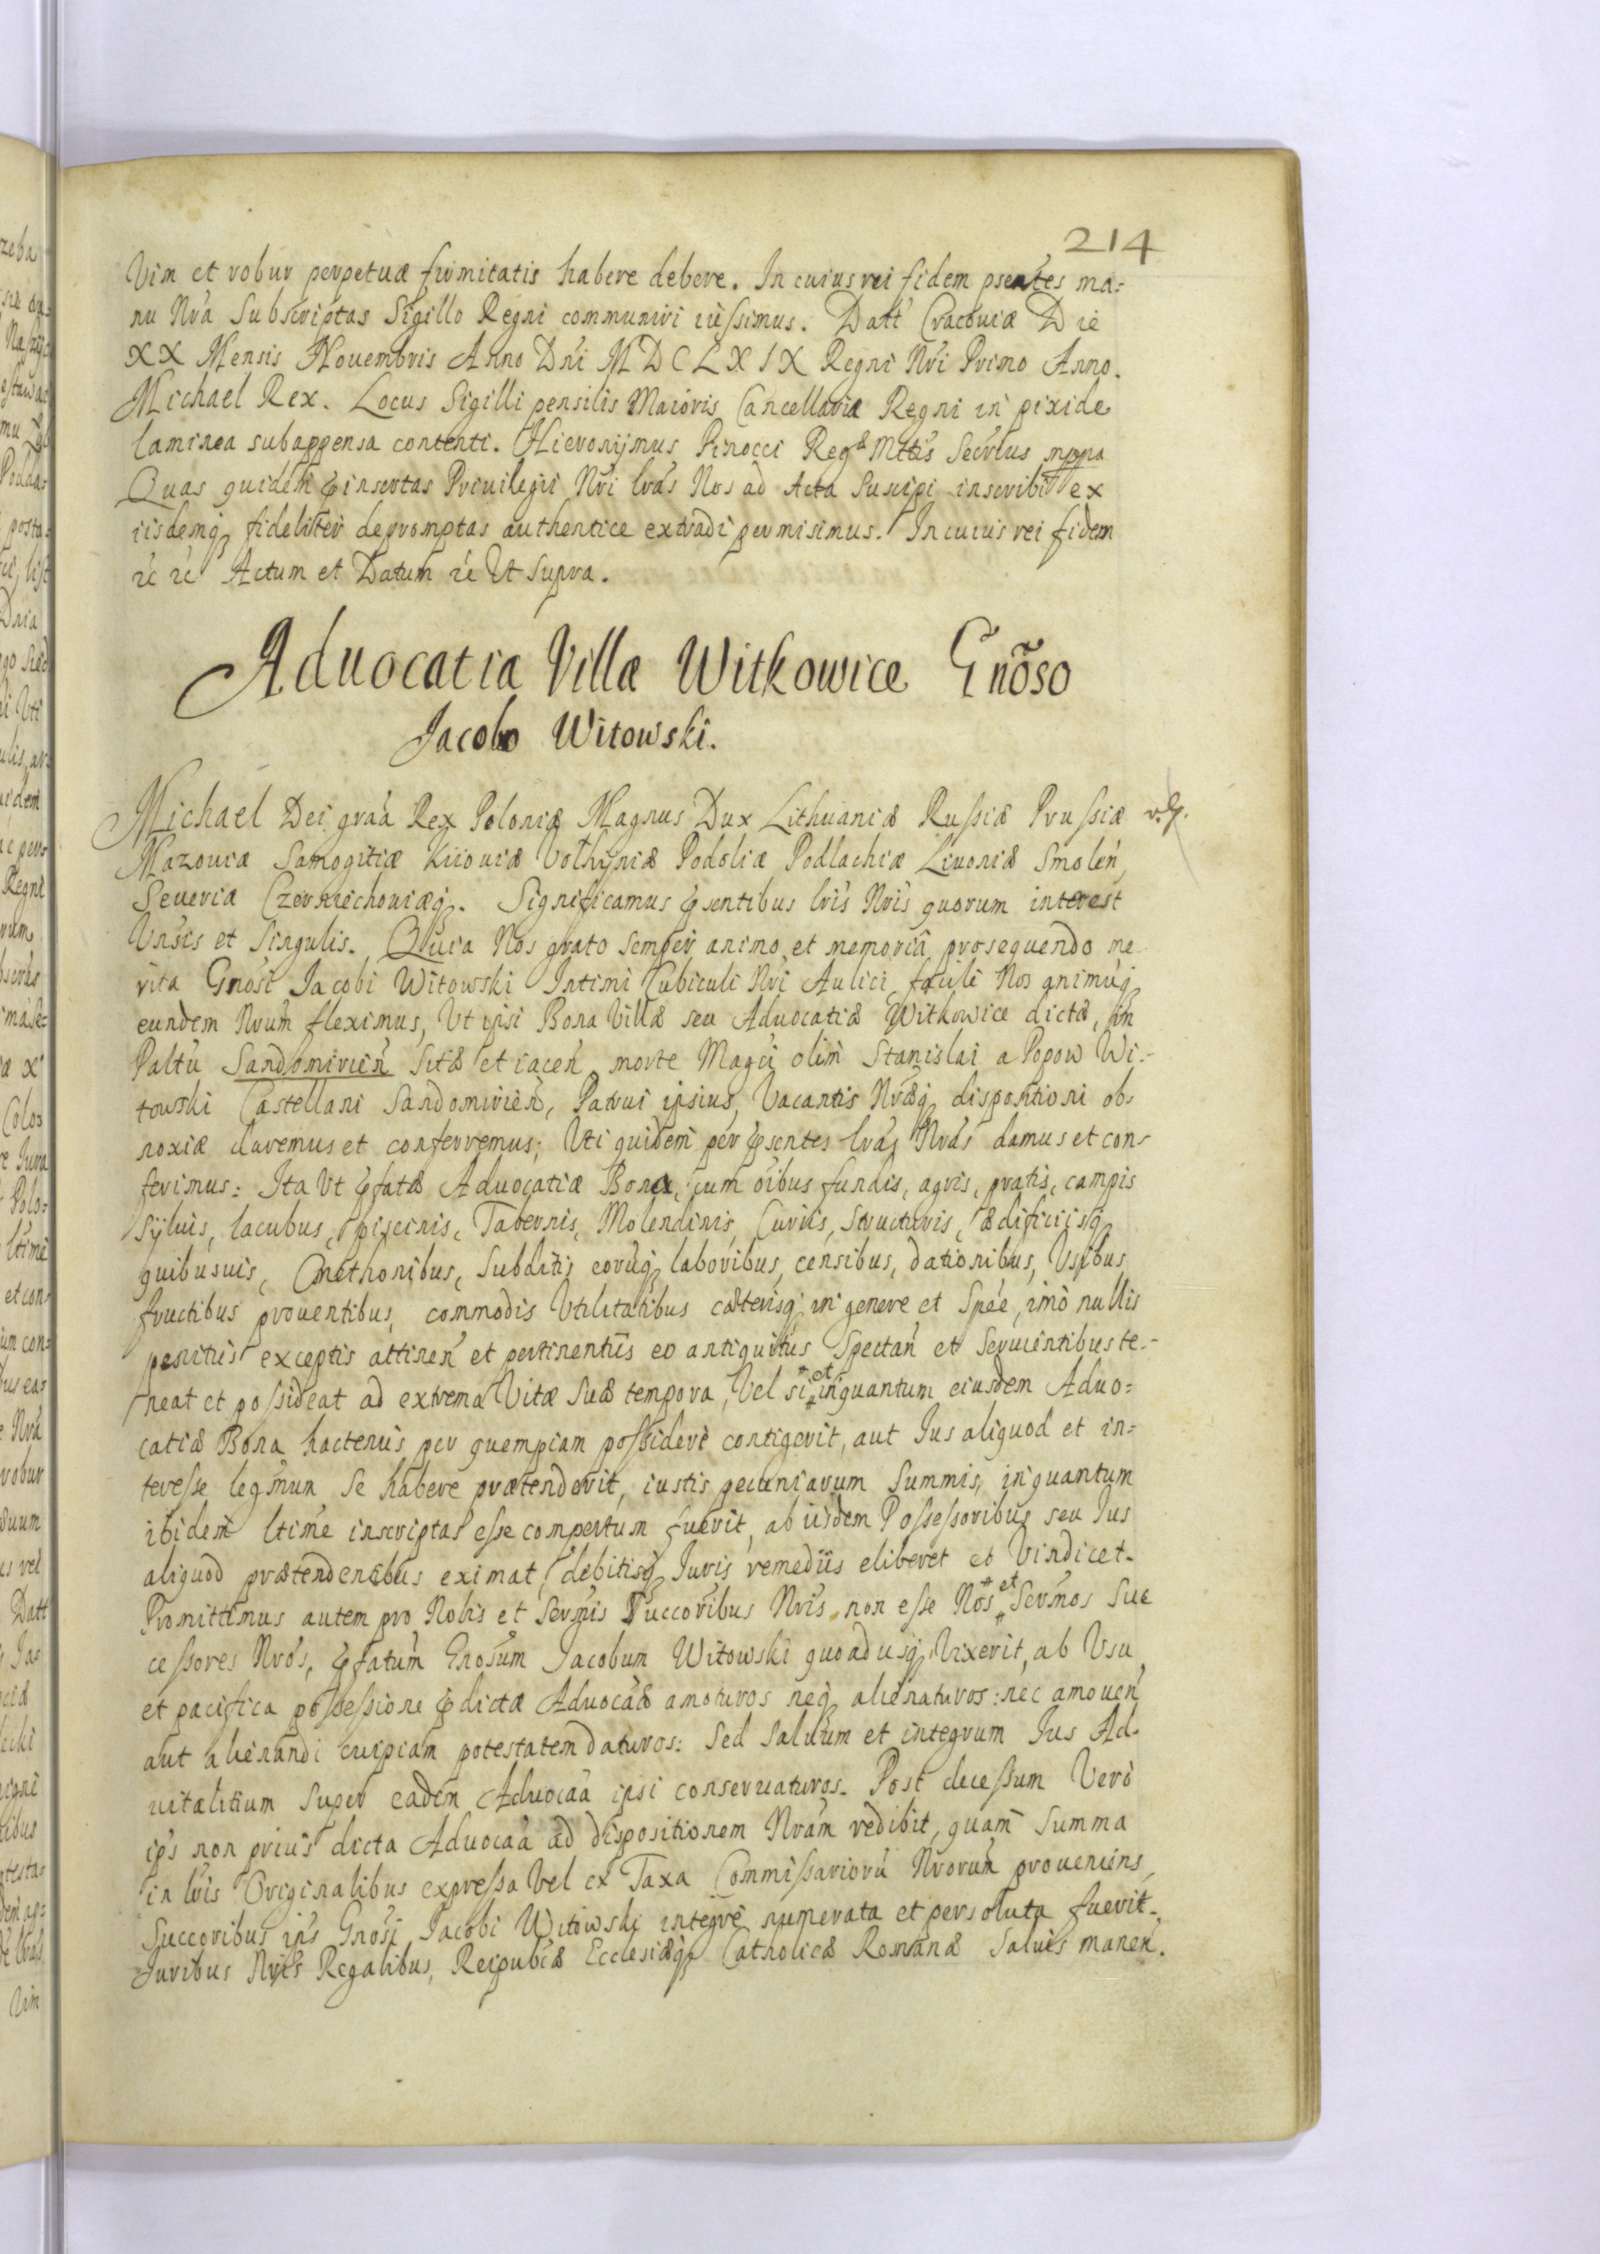 214
Vim et robur perpetuæ firmitatis habere debere. In cuius rei fidem psentes ma:
nu Nrã Subscriptas Sigillo Regni communiri iussimus. Datt Cracoviæ Die
XX Mensis Novembris Anno Dni MDCLXIX Regni Nri Primo Anno.
Michael Rex. Locus Sigilli pensilis Maioris Cancellariæ Regni in pixide
laminea subappensa contenti. Hieronijmus Pinocci Regæ Mttis Secrius mppa
Quas quidem pinsertas Privilegii Nri lrãs Nos ad Acta Suscipi inscribi ex
iisdemq fideliter depromptas authentice extradi permisimus. In cuius rei fidem
rc rc Actum et Datum rc Ut supra.
Aduocatia Villæ Witkowice Gnõso
Jacobo Witowski.
Michael Dei graã Rex Poloniæ Magnus Dux Lithuaniæ Russiæ Prussiæ
Mazouiæ Samogitiæ Kiiouiæ Volhyniæ Podoliæ Podlachiæ Liuoniæ Smolen,
Seueriæ Czerniechouiæq. Significamus psentibus lris Nris quorum interest
Unsis et Singulis. Quia Nos grato semper animo et memoriã prosequendo me
rita Gnosi Jacobi Witowski Intimi Cubiculi Nri Aulici, facile Nos animúq
eundem Nrum fleximus, Ut ipsi Bona Villæ seu Aduocatiæ Witkowice dictæ, in
Paltu Sandomirien Sitæ et iacen morte Magci olim Stanislai a Popow Wi-
towski Castellani Sandomirien, Patrui ipsius, Vacantis Nræq dispositioni ob-
noxiæ daremus et conferremus; Uti quidem per psentes lrãs Nrãs damus et con-
ferimus: Ita Ut pfatæ Aduocatiæ Bona, cum oibus fundis, agris, pratis, campis
Syluis, lacubus, piscinis, Tabernis, Molendinis, Curiis, Structuris, ædificiisq
quibusuis, Cmethonibus, Subditis eorúq laboribus, censibus, dationibus, Usibus
fructibus prouentibus, commodis Utilitatibus cæterisq in genere et Spée, imò nullis
penitus exceptis attinen et pertinentiis eo antiquitus Spectan et Seruientibus te-
neat et possideat ad extrema Vitæ Suæ tempora, Vel si et inquantum eiusdem Aduo:
catiæ Bona hactenus per quempiam possideri contigerit, aut Ius aliquod et in=
teresse legmum Se habere prætenderit, iustis pecuniarum Summis, inquantum
ibidem ltime inscriptas esse compertum fuerit, ab iisdem Possessoribus seu Ius
aliquod prætendentibus eximat, debitisq Iuris remediis eliberet et Vindicet.
Promittimus autem pro Nobis et Sermis Succoribus Nris non esse Nos et Sermos Suc
cessores Nros, pfatum Gnosum Jacobum Witowski quoadusq Vixerit, ab Usu
et pacifica possessione pdictæ Aduocaæ amoturos neq alienaturos: nec amouen
aut alienandi cuipiam potestatem daturos: Sed Saluum et integrum Ius Ad-
uitalitium Super eadem Aduocaã ipsi conseruaturos. Post decessum Verò
ips non prius dicta Aduocaã ad dispositionem Nrãm redibit, quam Summa
in lris Originalibus expressa Vel ex Taxa Commissariorũ Nrorum proueniens,
Succoribus ips Gnosi Jacobi Witowski integrè numerata et persoluta fuerit.
Juribus Nris Regalibus, Reipubcæ Ecclesiæq Catholicæ Romanæ Saluis manen.